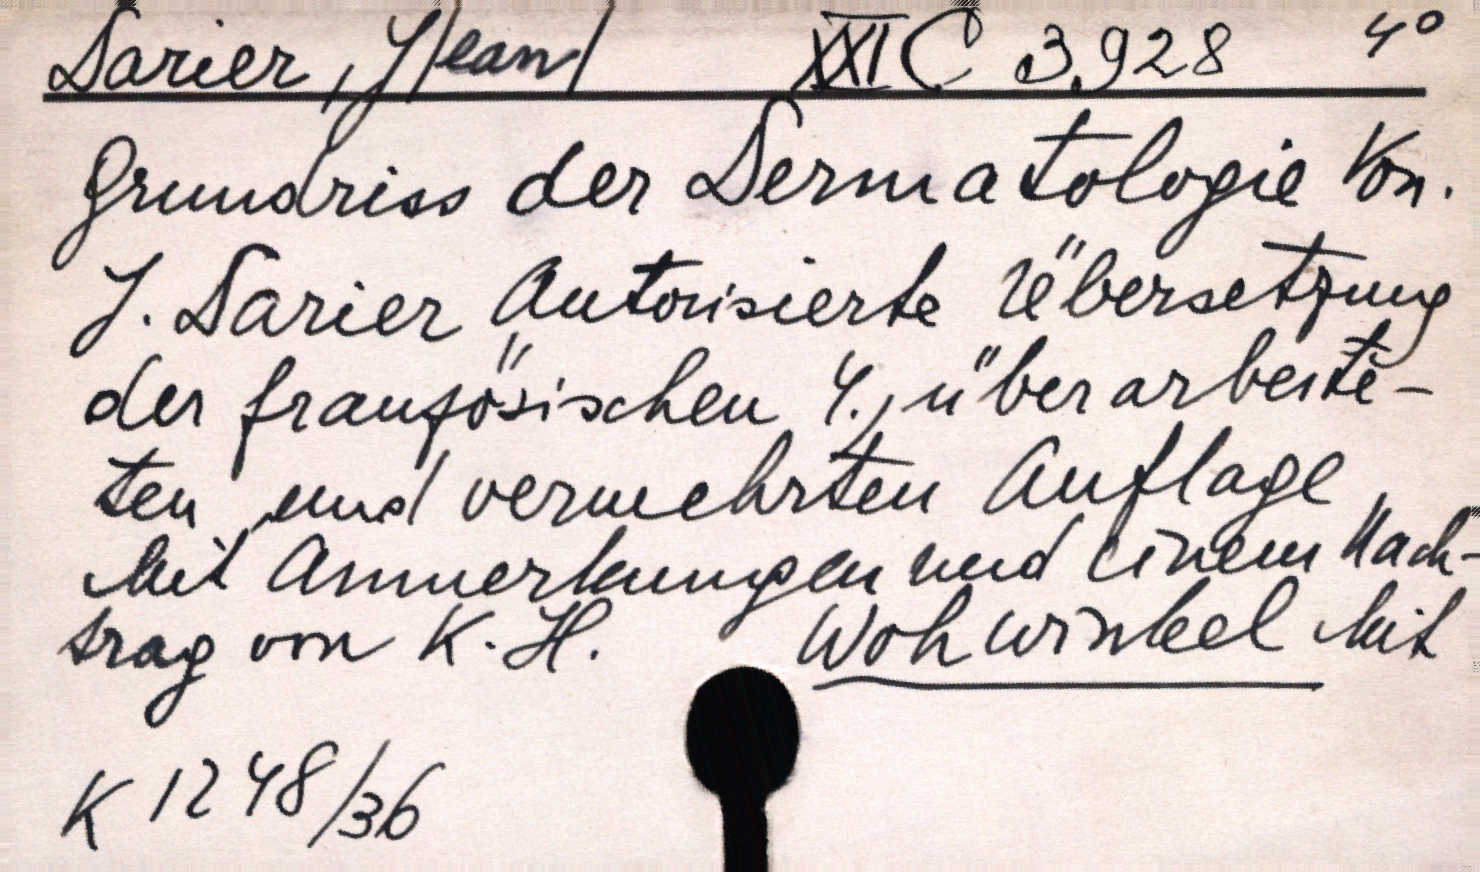 Darier, J/ean/ XXI C 3.928 4°
Grundriss der Dermatologie Von.
J. Darier Autorisierte Übersetzung
der französischen 4., überarbeite-
ten und vermehrten Auflage,
Mit Anmerkungen und einem Nach-
trag von K. H. Wohwinkel Mit
K 1248/36